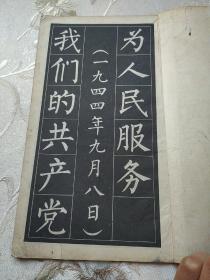 为人民服务
（一九四四年九月八日）
我们的共产党